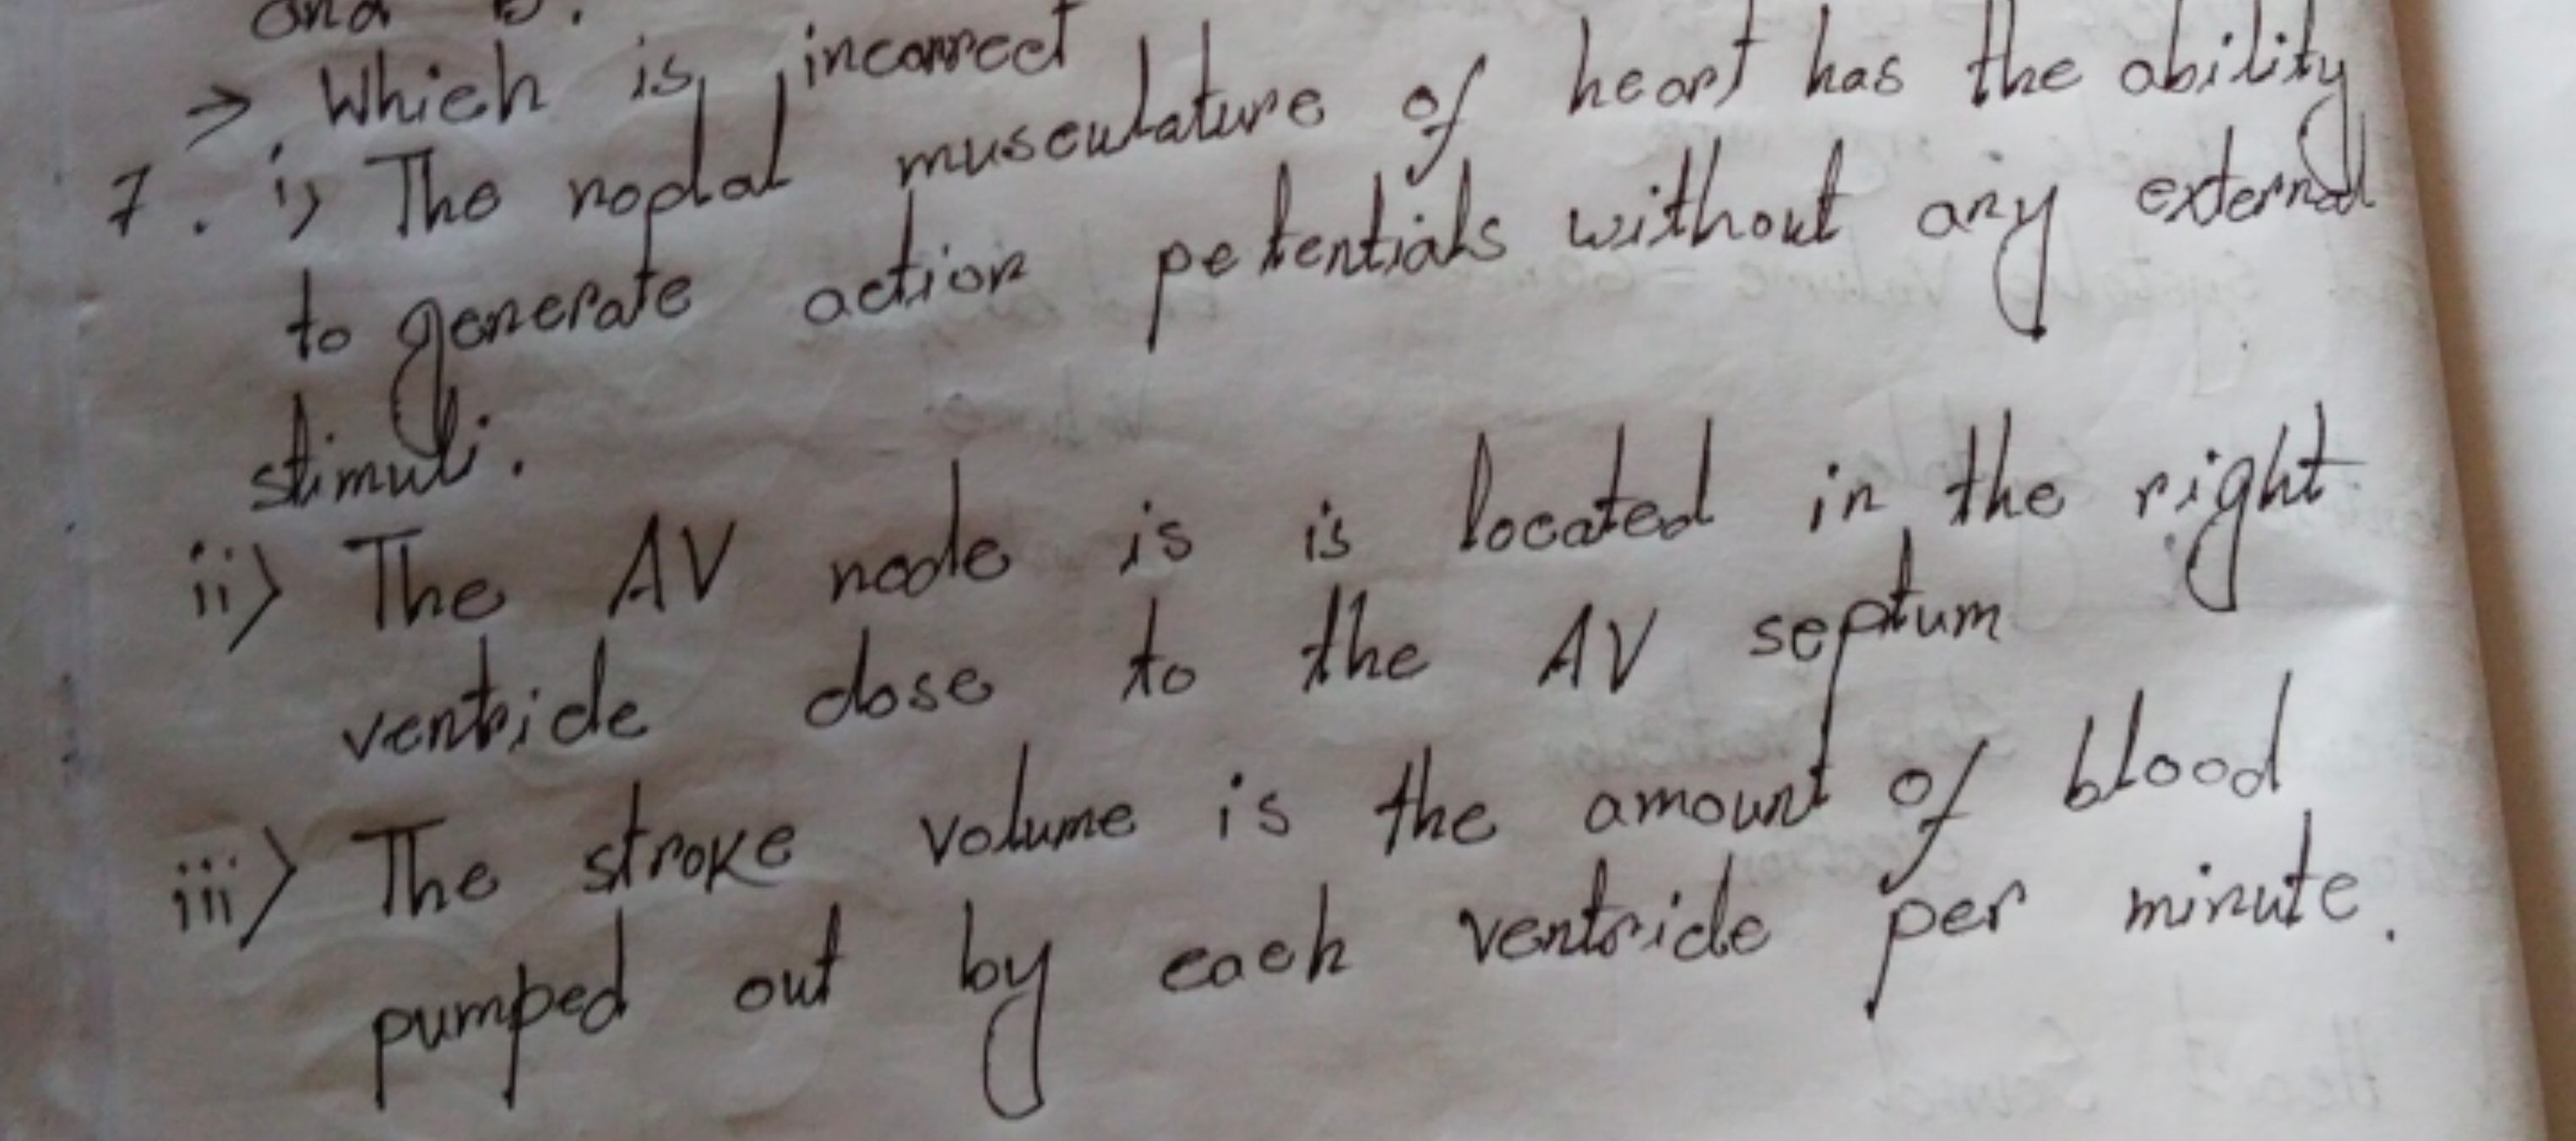 and B.
→ Which is incorrect
7. i) The nodal musculature of heart has the ability
to generate action potentials without any external
stimuli.
ii) The AV node is is located in the right
ventricle close to the AV septum
iii) The stroke volume is the amount of blood
pumped out by each ventricle per minute.